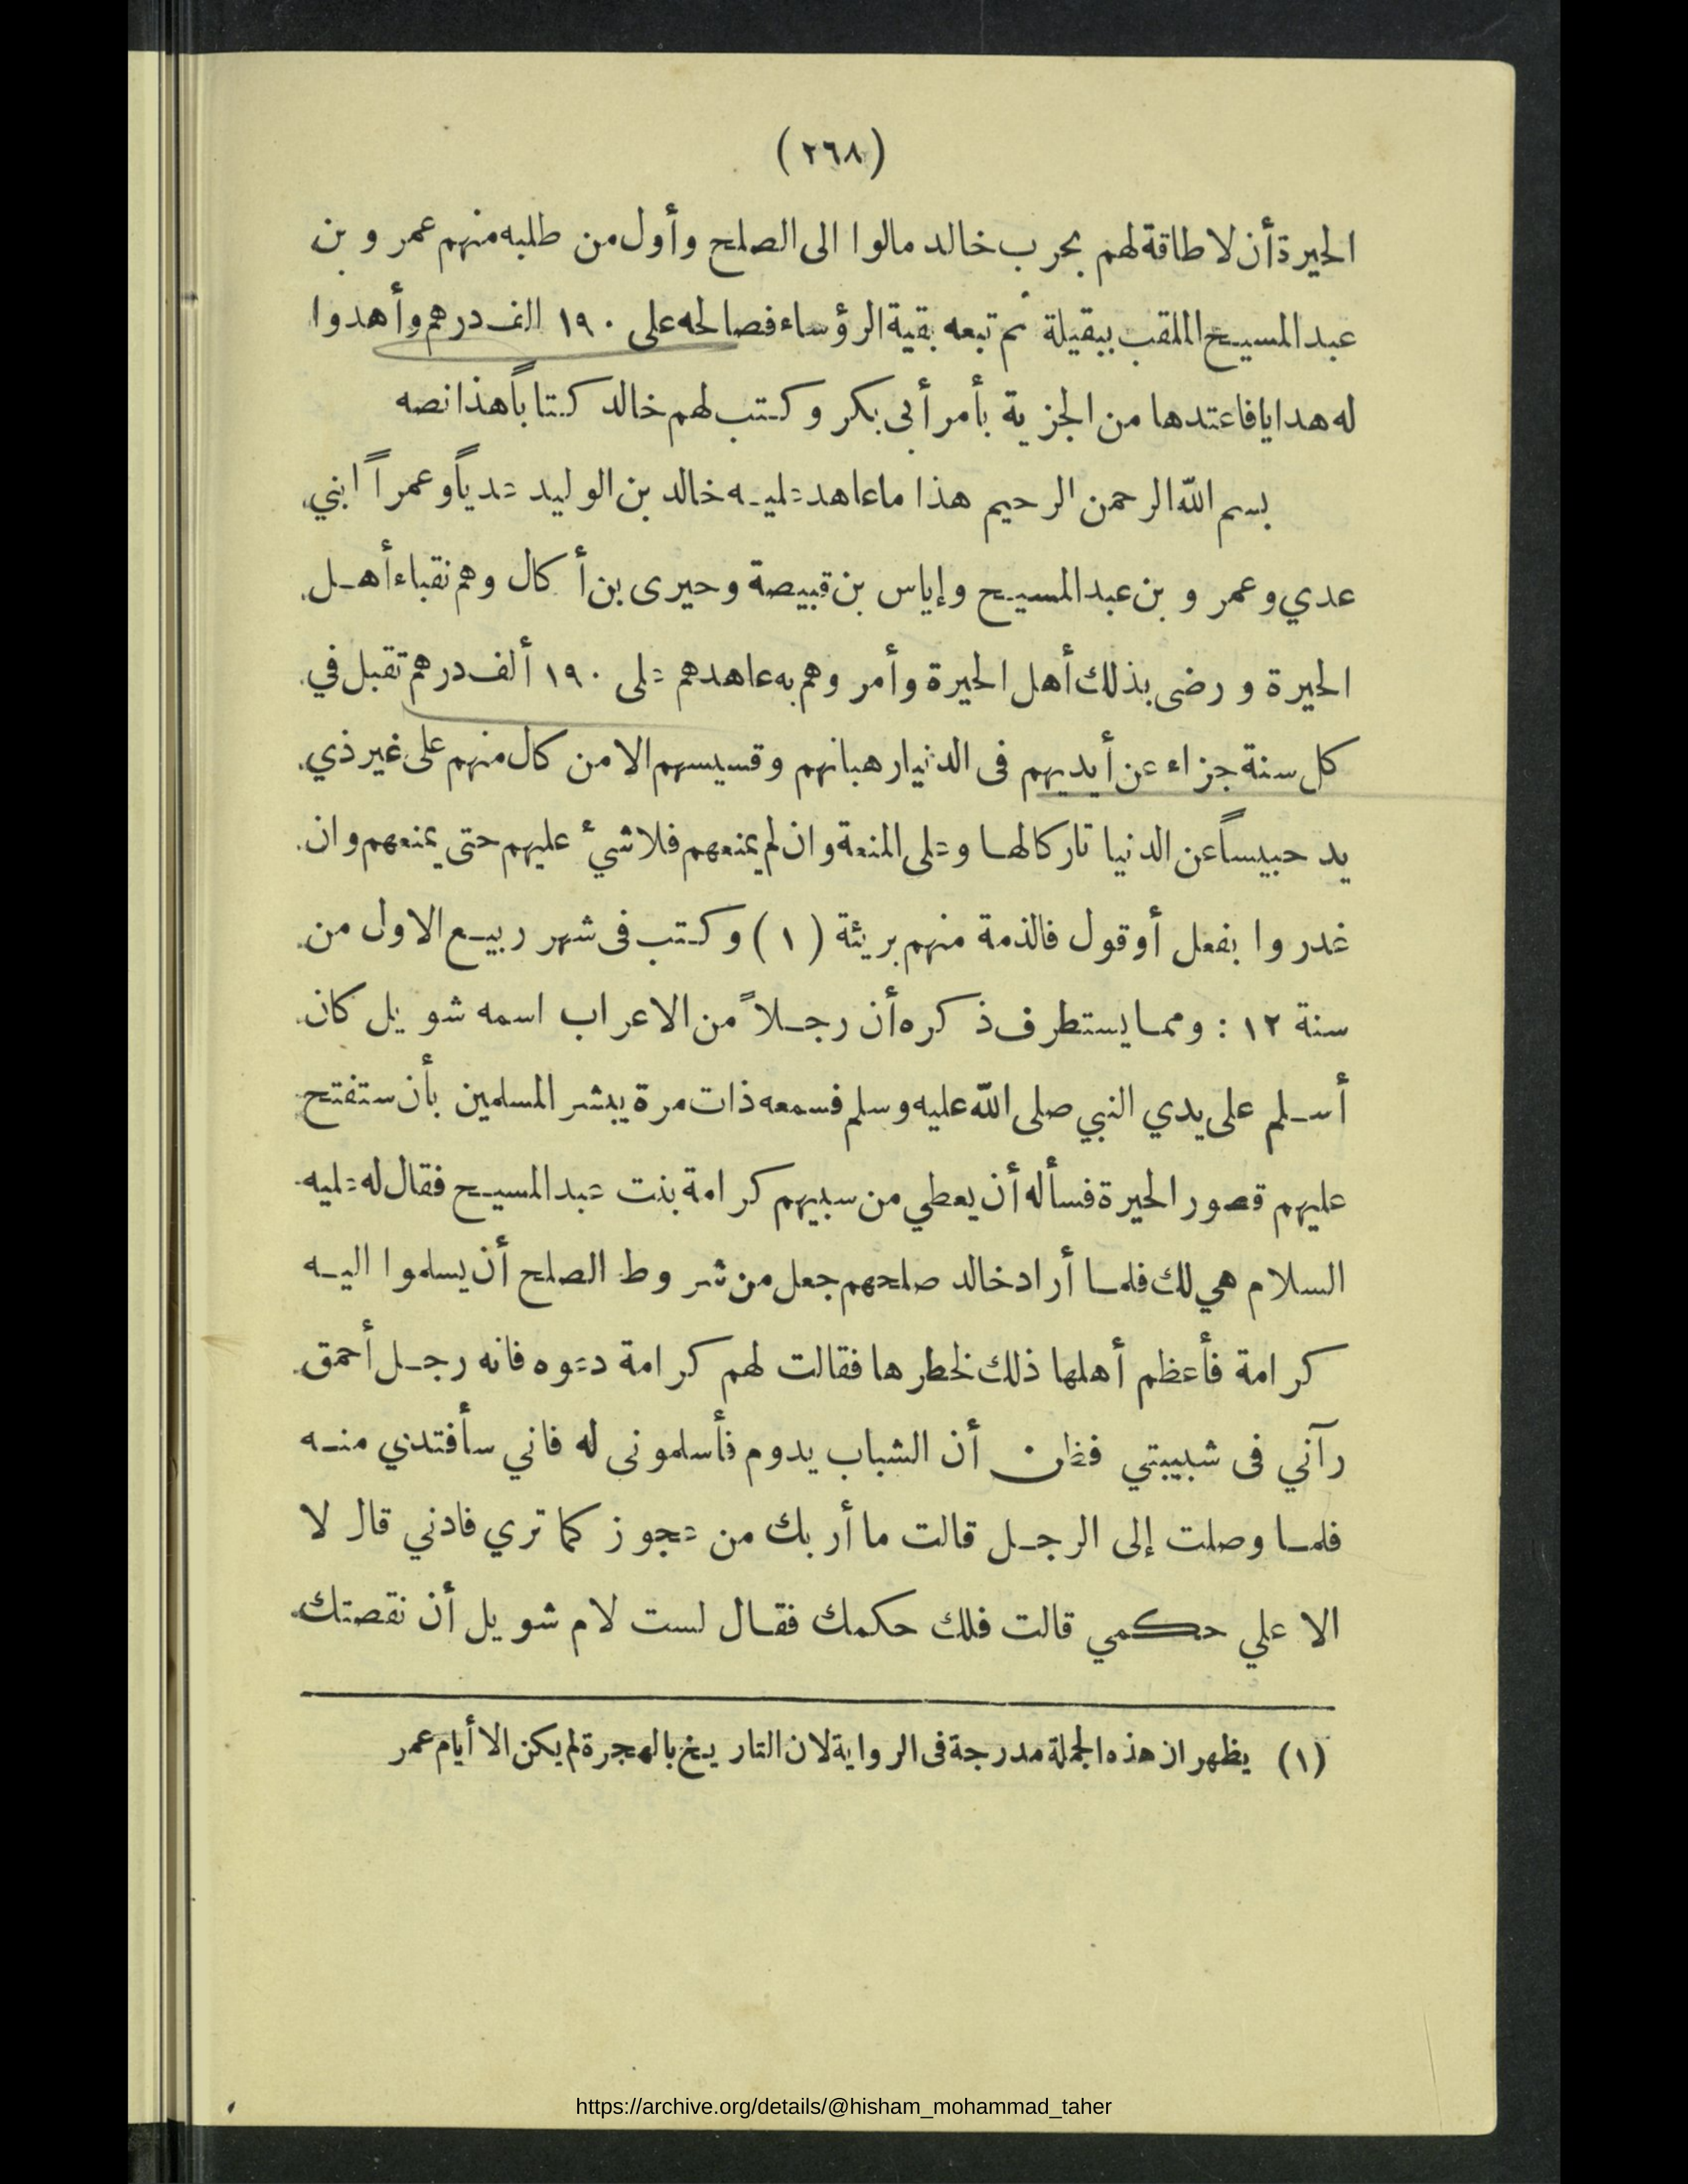 (٢٦٨)
الحيرة أن لا طاقة لهم بحرب خالد مالوا الى الصلح وأول من طلبه منهم عمرو بن
عبد المسيح الملقب ببقيلة ثم تبعه بقية الرؤساء فصالحه على ١٩٠ الف درهم وأهدوا
له هدايا فاعتدها من الجزية بأمر أبى بكر وكتب لهم خالد كتاباً هذا نصه
بسم الله الرحمن الرحيم هذا ما عاهد عليه خالد بن الوليد عدياً وعمراً ابني
عدي وعمرو بن عبد المسيح وإياس بن قبيصة وحيرى بن أ كال وهم نقباء أهل
الحيرة ورضى بذلك أهل الحيرة وأمروهم به عاهدهم على ١٩٠ ألف درهم تقبل في
كل سنة جزاء عن أيديهم فى الدنيا رهبانهم وقسيسهم الا من كال منهم على غير ذي
يد حبيساً عن الدنيا تاركا لها وعلى المنعة وان لم يمنعهم فلا شيء عليهم حتى يمنعهم وان
غدروا بفعل أو قول فالذمة منهم بريئة (١) وكتب فى شهر ربيع الاول من
سنة ١٢ : ومما يستطرف ذكره أن رجلاً من الاعراب اسمه شويل كان
أسلم على يدي النبي صلى الله عليه وسلم فسمعه ذات مرة يبشر المسلمين بأن ستفتح
عليهم قصور الحيرة فسأله أن يعطي من سبيهم كرامة بنت عبد المسيح فقال له عليه
السلام هي لك فلما أراد خالد صلحهم جعل من شروط الصلح أن يسلموا اليه
كرامة فأعظم أهلها ذلك لخطرها فقالت لهم كرامة دعوه فانه رجل أحمق
رآني فى شبيبتي فظن أن الشباب يدوم فأسلمونى له فاني سأفتدي منه
فلما وصلت إلى الرجل قالت ما أربك من عجوز كما تري فادني قال لا
الا علي حكمي قالت فلك حكمك فقال لست لام شويل أن نقصتك
(١) يظهر ان هذه الجملة مدرجة فى الرواية لان التاريخ بالهجرة لم يكن الا أيام عمر
https://archive.org/details/@hisham_mohammad_taher